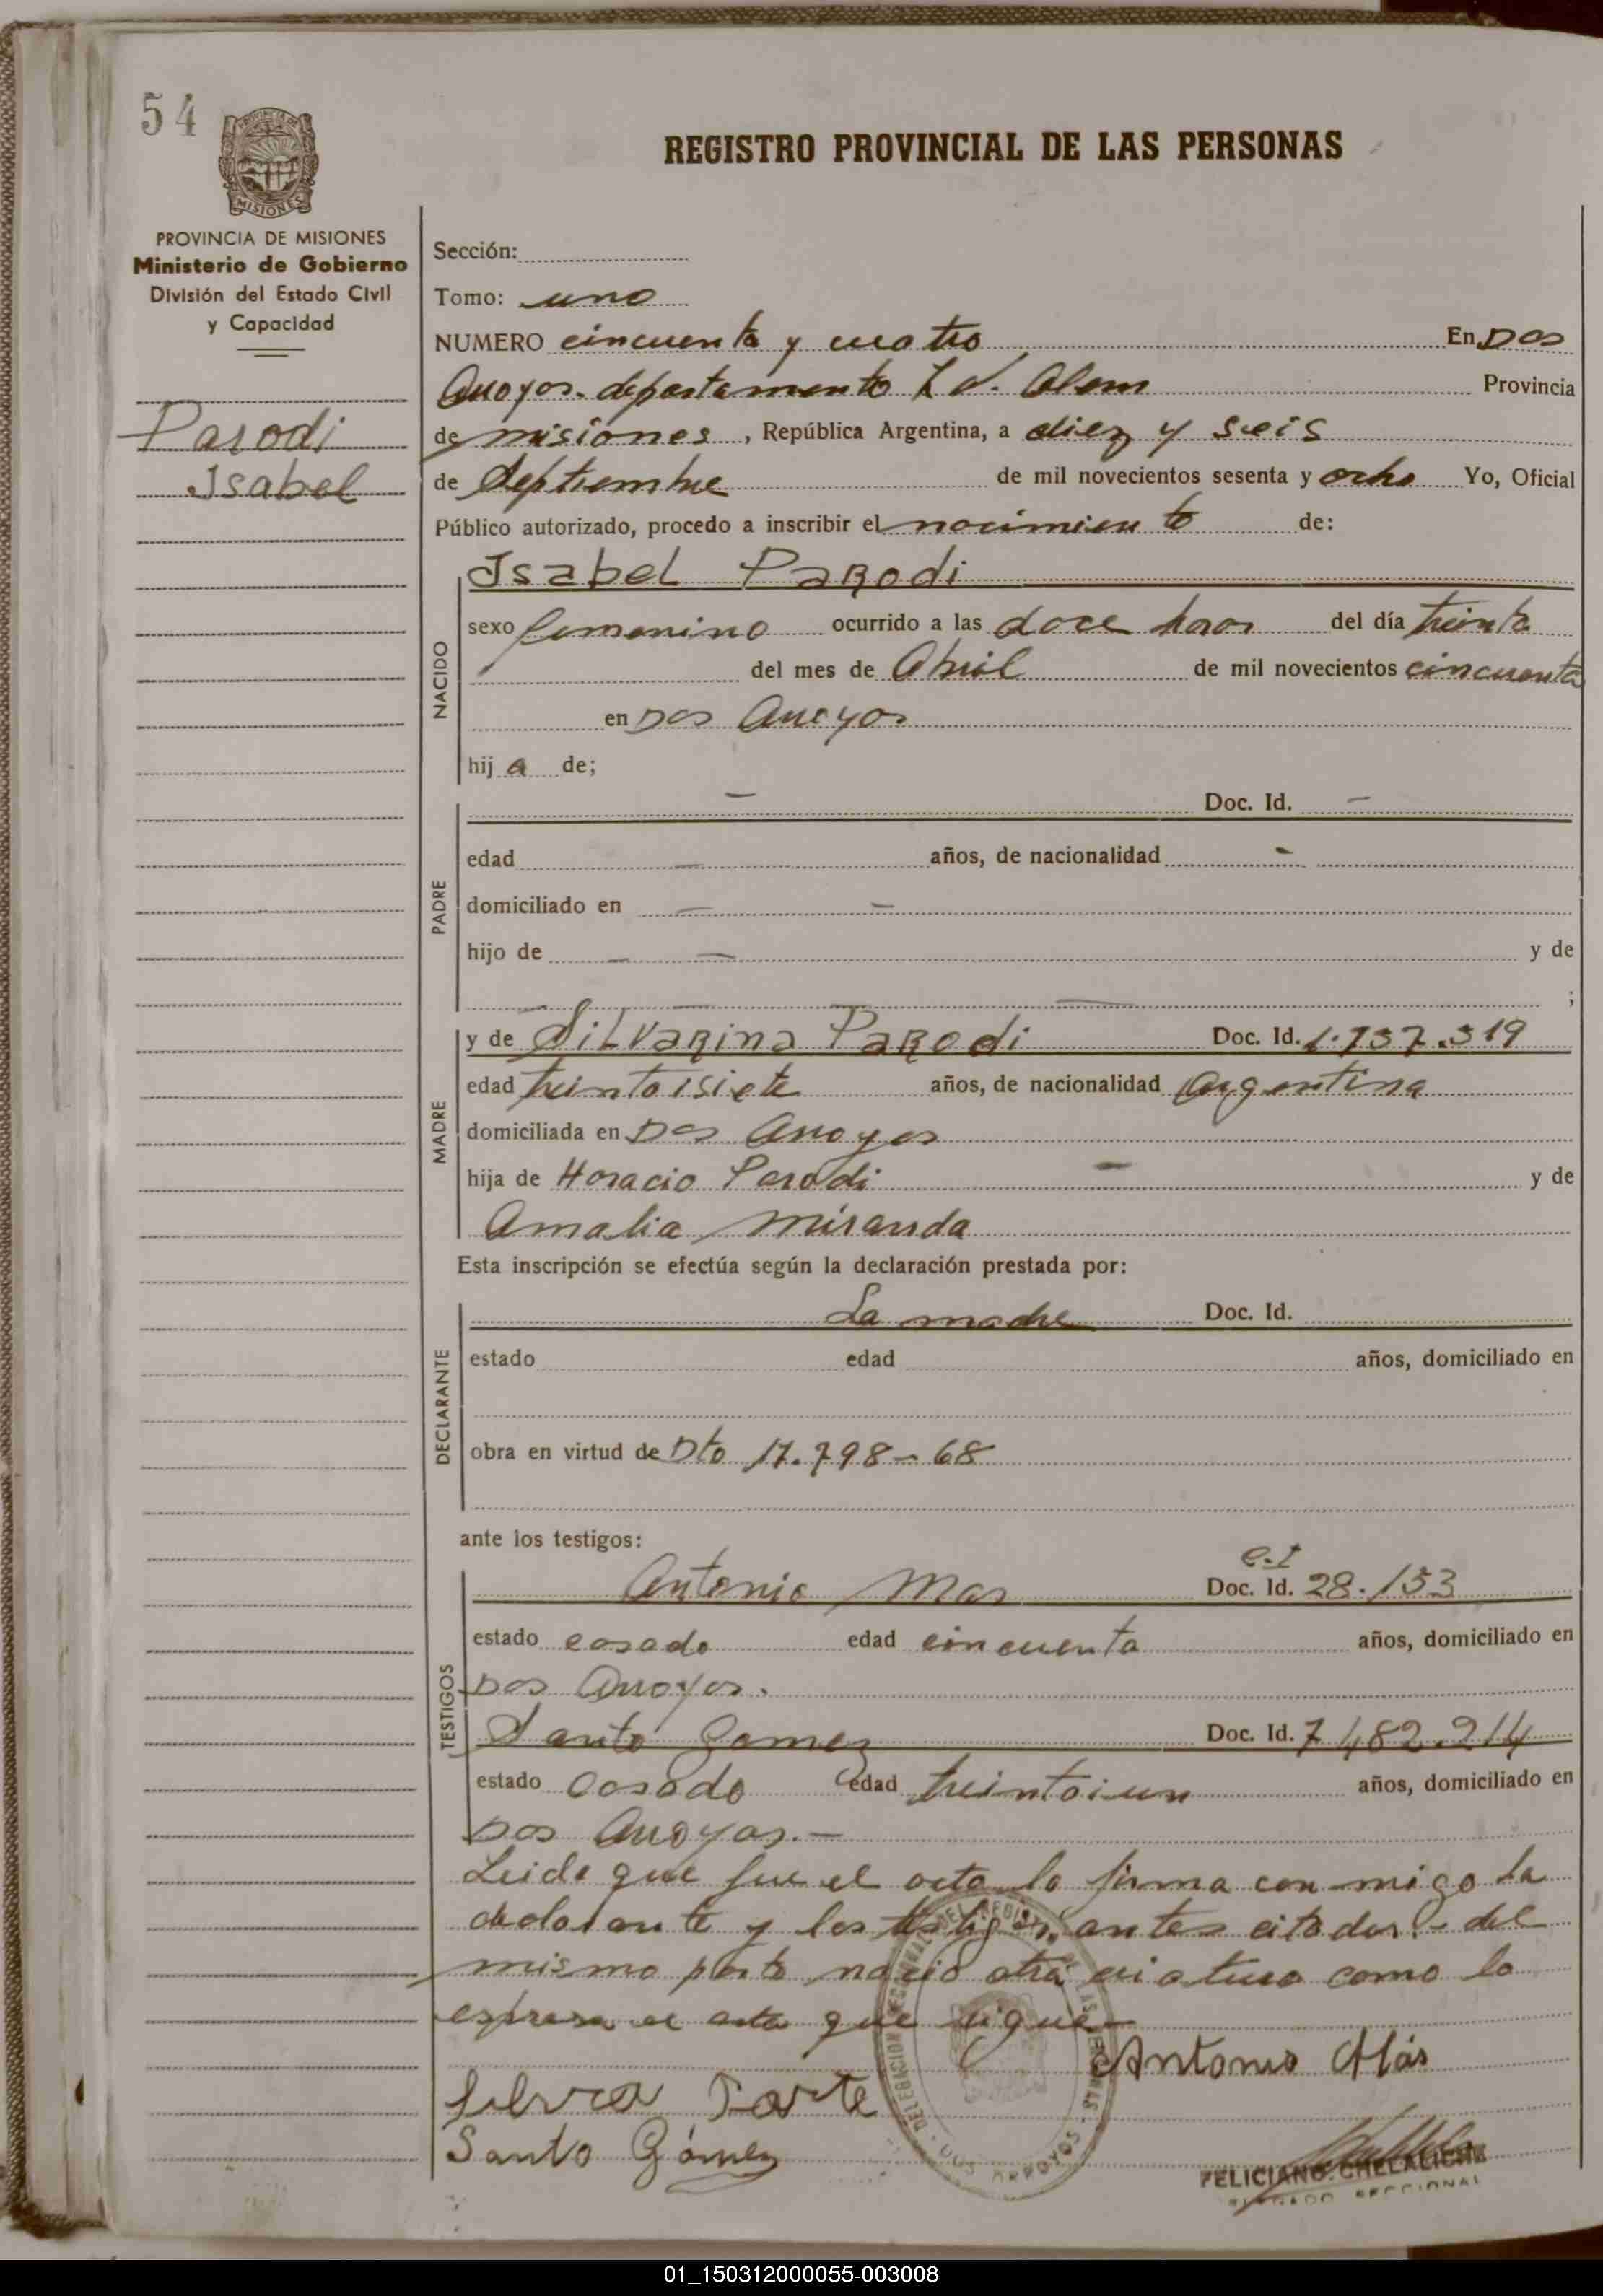 54
PROVINCIA DE
MISIONES
REGISTRO PROVINCIAL DE LAS PERSONAS
PROVINCIA DE MISIONES
Ministerio de Gobierno
División del Estado Civil
y Capacidad
Parodi
Isabel
Sección:
Tomo: uno
NUMERO cincuenta y cuatro En Dos
Arroyos. departamento L d. Alem Provincia
de misiones, República Argentina, a diez y seis
de Septiembre de mil novecientos sesenta y ocho Yo, Oficial
Público autorizado, procedo a inscribir el nacimiento de:
NACIDO
Isabel Parodi
sexo femenino ocurrido a las doce horas del día treinta
del mes de Abril de mil novecientos cincuenta
en Dos Arroyos
hij a de;
PADRE
— Doc. Id. —
edad — años, de nacionalidad -
domiciliado en — —
hijo de — — y de
;
MADRE
y de Silvarina Parodi Doc. Id. 1.737.319
edad treintaisiete años, de nacionalidad Argentina
domiciliada en Dos Arroyos
hija de Horacio Parodi — y de
Amalia Miranda
Esta inscripción se efectúa según la declaración prestada por:
DECLARANTE
La madre Doc. Id.
estado edad años, domiciliado en
obra en virtud de Dto 17.798-68
ante los testigos:
TESTIGOS
c.I
Antonio Mas Doc. Id. 28.153
estado casado edad cincuenta años, domiciliado en
Dos Arroyos.
Santo Gomez Doc. Id. 7 482.214
estado casado edad treintaiun años, domiciliado en
Dos Arroyos.—
Leida que fue el acta la firma con migo la
declarante y los testigos antes citados.- del
mismo parto nacio otra criatura como lo
espresa el acta que sigue—
Antonio
Santo Gómez
DOS ARROYOS
FELICIANO CHELALICHE
SECCIONAL
01_150312000055-003008